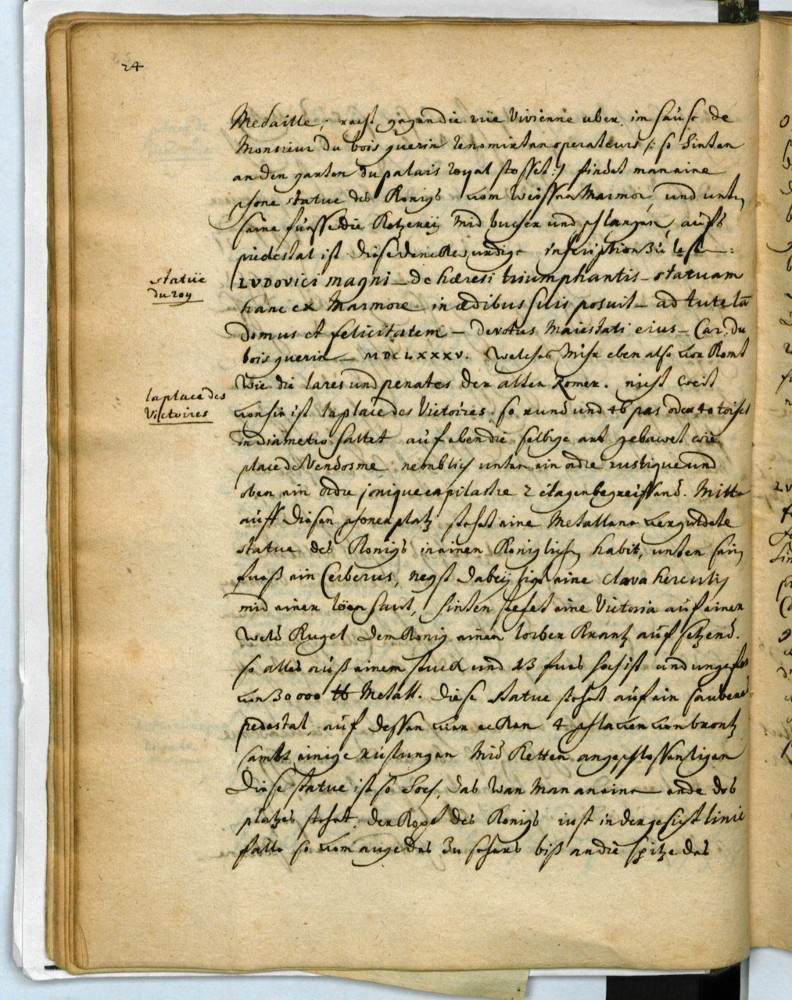 24
Medaille; rechst gegen die rüe Vivienne uber im hause de
Monsieur du bois guerin renomirten operateurs /: so hinten
an den garten du palais royal stosset :/ findet man eine
schöne statue des Konigs vom weissen Marmor und unter
seine füsse die Ketzereij mit bucher und schlangen, aufs
piedestal ist diese denckwurdige inscription zu lesen:
statüe
du roy
LVDOVICI magni – de hæresi triumphantis – statuam
hanc ex Marmore in ædibus suis posuit – ad tutelā
domus et felicitatem – devotus Maiestati eius – Car. du
bois guerin – MDCLXXXV. welches mihr eben also vor komt
wie die lares und penates der alten Romer. nicht weit
la place des
Victoires
von hir ist la place des Victoires so rund und 46 pas oder 40 toises
in diametro haltet auf eben die selbige art gebawet wie
place de Vendosme nemblich unten ein ordre rustique und
oben ein ordre jonique en pilastre 2 etagen begreiffend. Mitten
auff diesen schonen platz stehet eine Metallene verguldete
statue des Konigs in einen Koniglichen habit, unter sein
fueß ein Cerberus, negst dabeij ligt eine clava herculis
mit einer löwen haut, hinten stehet eine Victoria auf einer
welt Kugel dem Konig einen lorber Krantz auf setzend.
so alles auß einem stuck und 13 fues hoch ist und ungefehr
von 30000 ℔ Metall. diese statue stehet auf ein sauberes
pedestal, auf dessen vier ecken 4 sclaven von brontz
sambt einige rüstungen mit Ketten angeschlossen ligen
diese statue ist so hoch, das wan man an eine ende des
platzes stehet der Kopf des Konigs iust in der gesicht linie
falle so vom auge des zu sehers biß an die spitze des